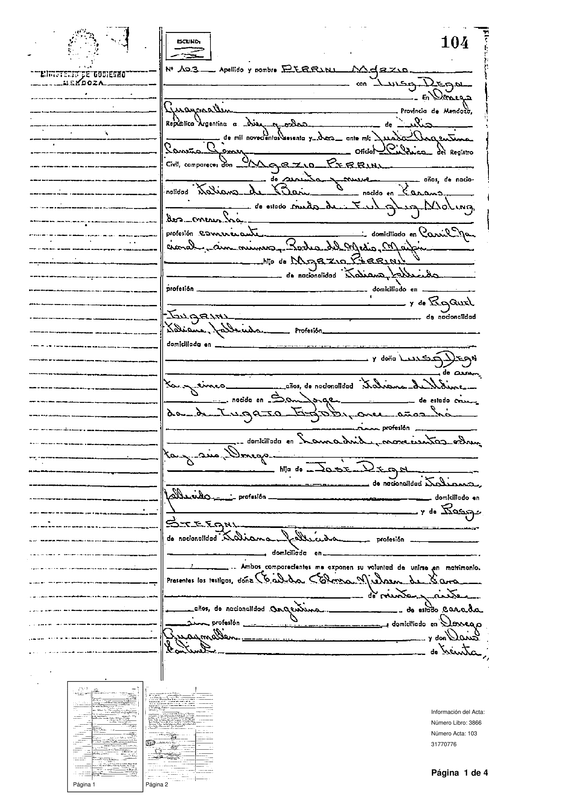 ESCUDO:
104
MINISTERIO DE GOBIERNO
MENDOZA
Nº 103 Apellido y nombre PERRINI MARZIO
con Luisa DEGN
En Dorrego
Guaymallén Provincia de Mendoza,
República Argentina a diez y ocho de Julio
de mil novecientos sesenta y dos ante mí: Justa Argentina
Oficial Público del Registro
Civil, comparecen: don MARZIO PERRINI
de sesenta y nueve años, de nacio-
nalidad italiano de Bari nacido en
de estado viudo de
dos meses há
profesión comerciante domiciliado en Carril Na
cional, sin número, Rodeo del Medio, Maipú
hijo de MARZIO PERRINI
de nacionalidad italiano, fallecido
profesión domiciliado en
y de Raquel
de nacionalidad
italiana, fallecida Profesión
domiciliada en
y doña LUISA DEGN
de
ta y cinco años, de nacionalidad italiana de Udine
nacida en San Jorge de estado viu
da de once años há
sin profesión
domiciliada en Lamadrid, novecientos ochen
ta y seis, Dorrego
hija de JOSÉ DEGN
de nacionalidad italiano,
fallecido profesión domiciliado en
y de Rosa
STEFANI
de nacionalidad italiana fallecida profesión
domiciliada en
Ambos comparecientes me exponen su voluntad de unirse en matrimonio.
Presentes los testigos, doña Elma Nielsen de
de treinta y siete
años, de nacionalidad argentina de estado casada
sin profesión y domiciliado en Dorrego
Guaymallén y don Dario
de treinta
Página 1
Página 2
Información del Acta:
Número Libro: 3866
Número Acta: 103
31770776
Página 1 de 4